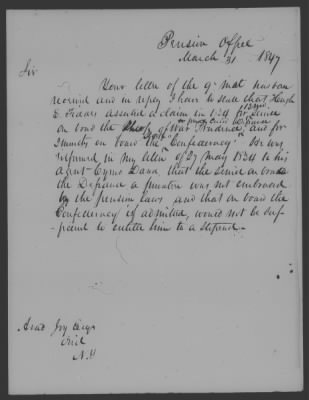 Pension Office
March 31 1847
Sir
Your letter of the 9th inst has been
received and in reply I have to state that Hugh
E. asserted a claim in 1834 for 12 mos service
on board the Sloop of War Providence, and for
on board the Confederacy. He was
informed in my letter of 27 May 1834 to his
Agent Cyrus Dana, that the service on board
the Defiance a privateer was not embraced
by the pension laws and that on board the
Confederacy if admitted, would not be suf-
-ficient to entitle him to a stipend.
Asad Joy Esqr
N.H